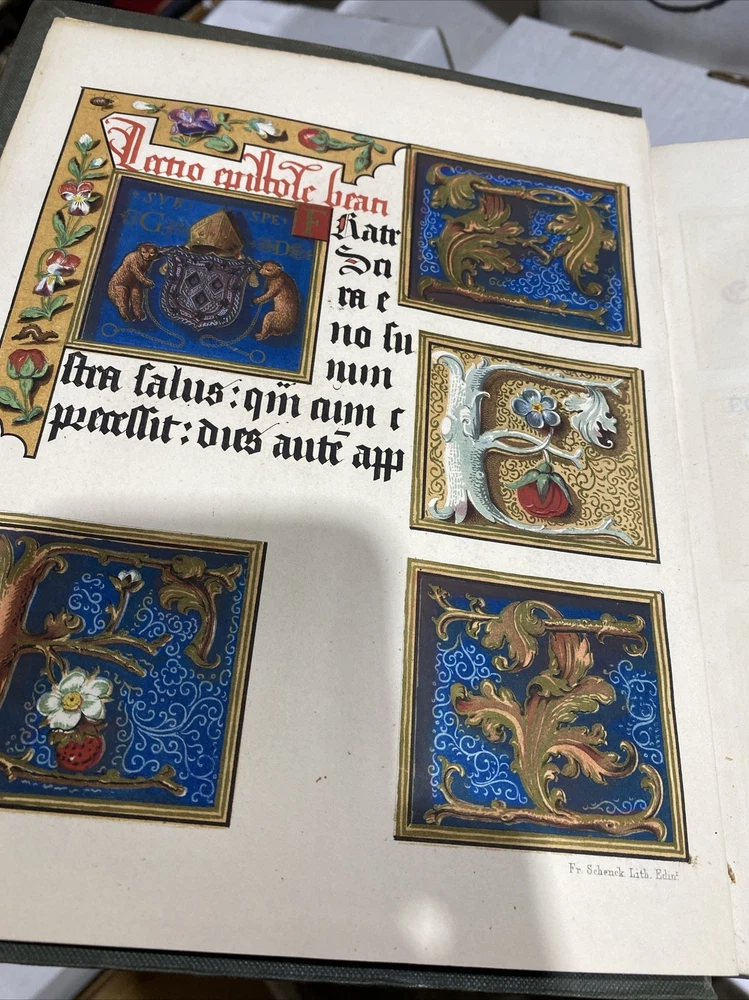 Lectio epistole beati
SVB SPE
F Ratr
Sci
ra e
no su
num
stra salus: qm̄ cum c
precessit: dies autē app
Fr. Schenck. Lith. Edinr.